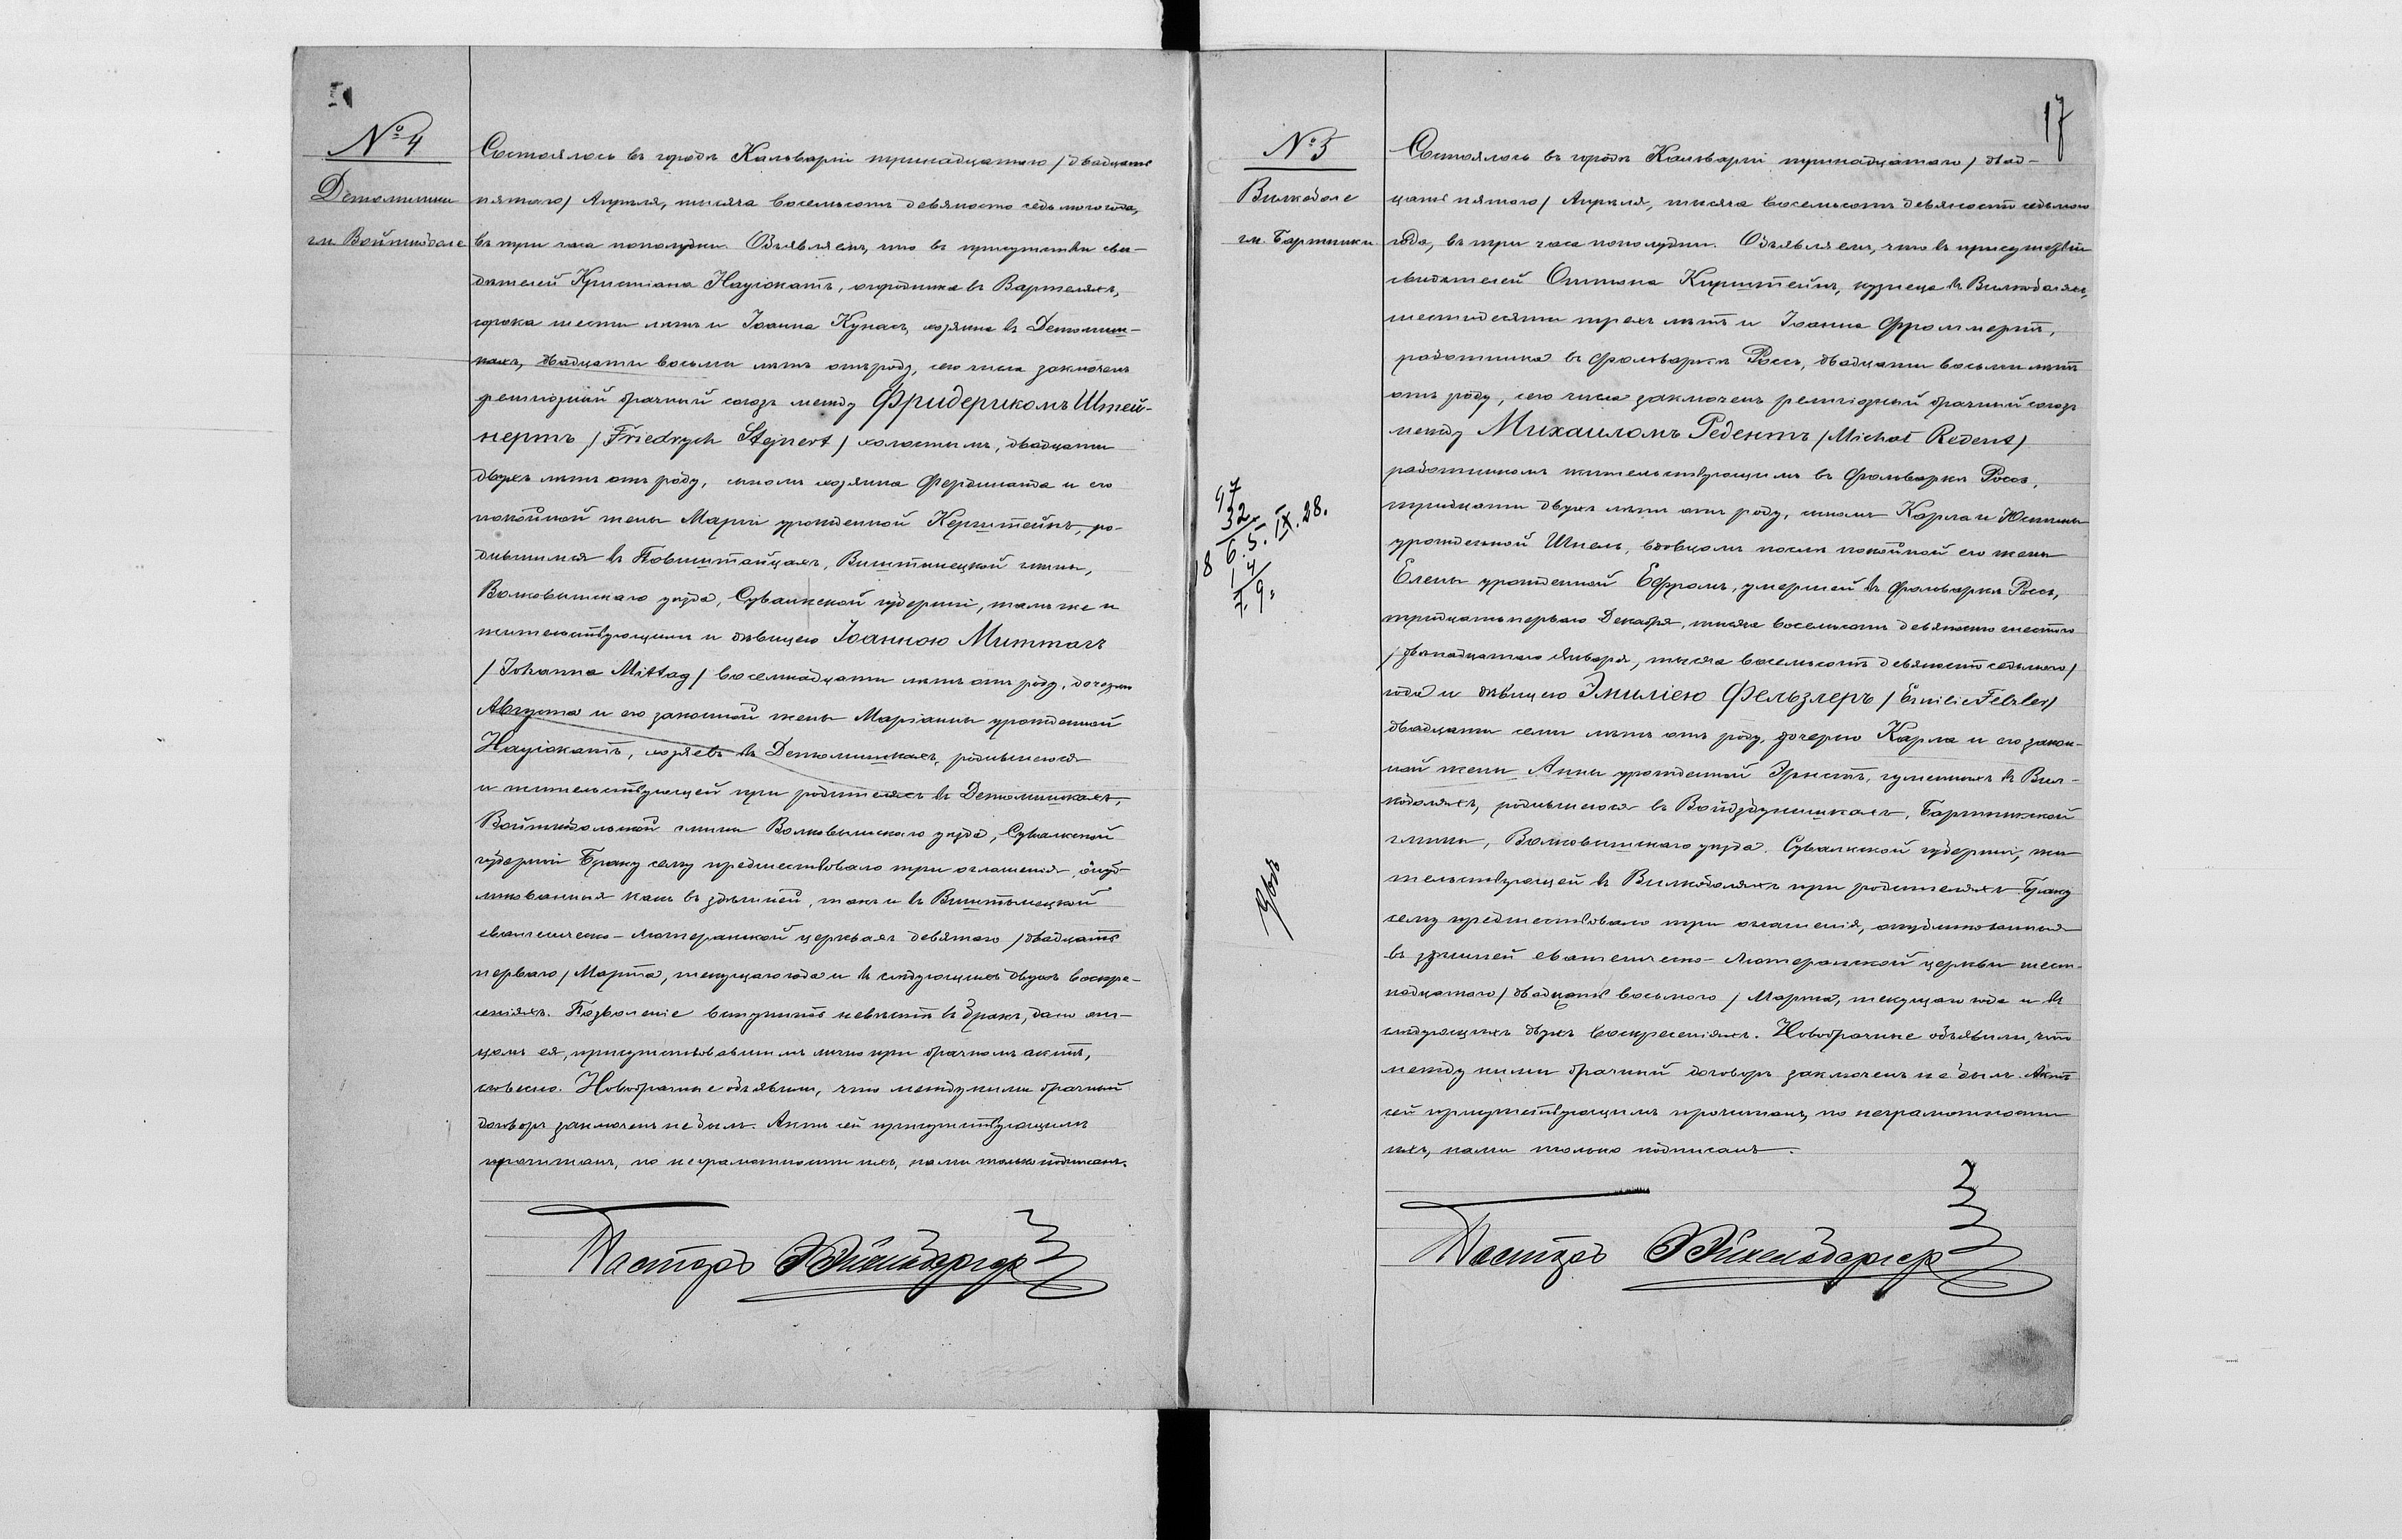 № 4
Детомишки
гм. Войткоболе
Состоялось въ городѣ Кальваріи тринадцатаго / двадцать
пятаго / Апрѣля, тысяча восемьсотъ девяносто седьмого года,
въ три часа пополудни. Объявляемъ, что въ присутствіи сви-
дѣтелей Кристіана Науіокатъ, огородника въ Вартеляхъ,
сорока шести лѣтъ и Іоанна Кунасъ, хозяина въ Детомиш-
кахъ, двадцати восьми лѣтъ отъ роду, сего числа заключенъ
религіозный брачный союзъ между Фридерикомъ Штей-
нертъ / Friedrych Stejnert / холостымъ, двадцати
двухъ лѣтъ отъ роду, сыномъ хозяина Фердинанда и его
покойной жены Маріи урожденной Керштейнъ, ро-
дившимся въ Повиштайцахъ, Виштынецкой гмины,
Волковышскаго уѣзда, Сувалкской губерніи, тамъ же и
жительствующимъ и дѣвицею Іоанною Миттагъ
/ Johanna Mittag / восемнадцати лѣтъ отъ роду, дочерью
Августа и его законной жены Маріанны урожденной
Науіокатъ, хозяевъ въ Детомишкахъ, родившеюся
и жительствующей при родителяхъ въ Детомишкахъ,
Войткобольской гмины Волковышскаго уѣзда, Сувалкской
губерніи Браку сему предшествовало три оглашенія, опуб-
ликованныя какъ въ здѣшней, такъ и въ Виштынецкой
евангелическо-лютеранской церквахъ девятаго / двадцать
перваго / Марта, текущаго года и въ слѣдующихъ двухъ воскре-
сеніяхъ. Позволеніе вступить невѣстѣ въ бракъ, дано от-
цомъ ея, присутствовавшимъ лично при брачномъ актѣ,
словесно. Новобрачные объявили, что между ними брачный
договоръ заключенъ не былъ. Актъ сей присутствующимъ
прочитанъ, по неграмотности ихъ, нами только подписанъ.
Пасторъ
17
№ 5
Вилкоболе
гм. Бартники
Состоялось въ городѣ Кальваріи тринадцатаго / двад-
цать пятаго / Апрѣля, тысяча восемьсотъ девяносто седьмого
года, въ три часа пополудни. Объявляемъ, что въ присутствіи
свидѣтелей Оттона Кирштейнъ, кузнеца въ Вилкоболяхъ,
шестидесяти трехъ лѣтъ и Іоанна Фроммертъ,
работника въ фольваркѣ Россь, двадцати восьми лѣтъ
отъ роду, сего числа заключенъ религіозный брачный союзъ
между Михаиломъ Редентъ / Michał Redent /
работникомъ жительствующимъ въ фольваркѣ Россь,
тридцати двухъ лѣтъ отъ роду, сыномъ Карла и Юстины
урожденной Шнель, вдовцомъ послѣ покойной его жены
Елены урожденной Ефромъ, умершей въ фольваркѣ Россь,
тридцать перваго Декабря, тысяча восемьсотъ девяносто шестого
/ двѣнадцатаго Января, тысяча восемьсотъ девяносто седьмого /
года и дѣвицею Эмиліею Фельзлеръ / Emilie Felzler /
двадцати семи лѣтъ отъ роду, дочерью Карла и его закон-
ной жены Анны урожденной Эрнстъ, гуменныхъ въ Вил-
коболяхъ, родившеюся въ Войдздунишкахъ, Бартникской
гмины, Волковышскаго уѣзда, Сувалкской губерніи, жи-
тельствующей въ Вилкоболяхъ при родителяхъ. Браку
сему предшествовало три оглашенія, опубликованныя
въ здѣшней евангелическо-лютеранской церкви шест-
надцатаго / двадцать восьмого / Марта, текущаго года и въ
слѣдующихъ двухъ воскресеніяхъ. Новобрачные объявили, что
между ними брачный договоръ заключенъ не былъ. Актъ
сей присутствующимъ прочитанъ, по неграмотности
ихъ, нами только подписанъ.
Пасторъ
97
32
6.5.IX.28.
18